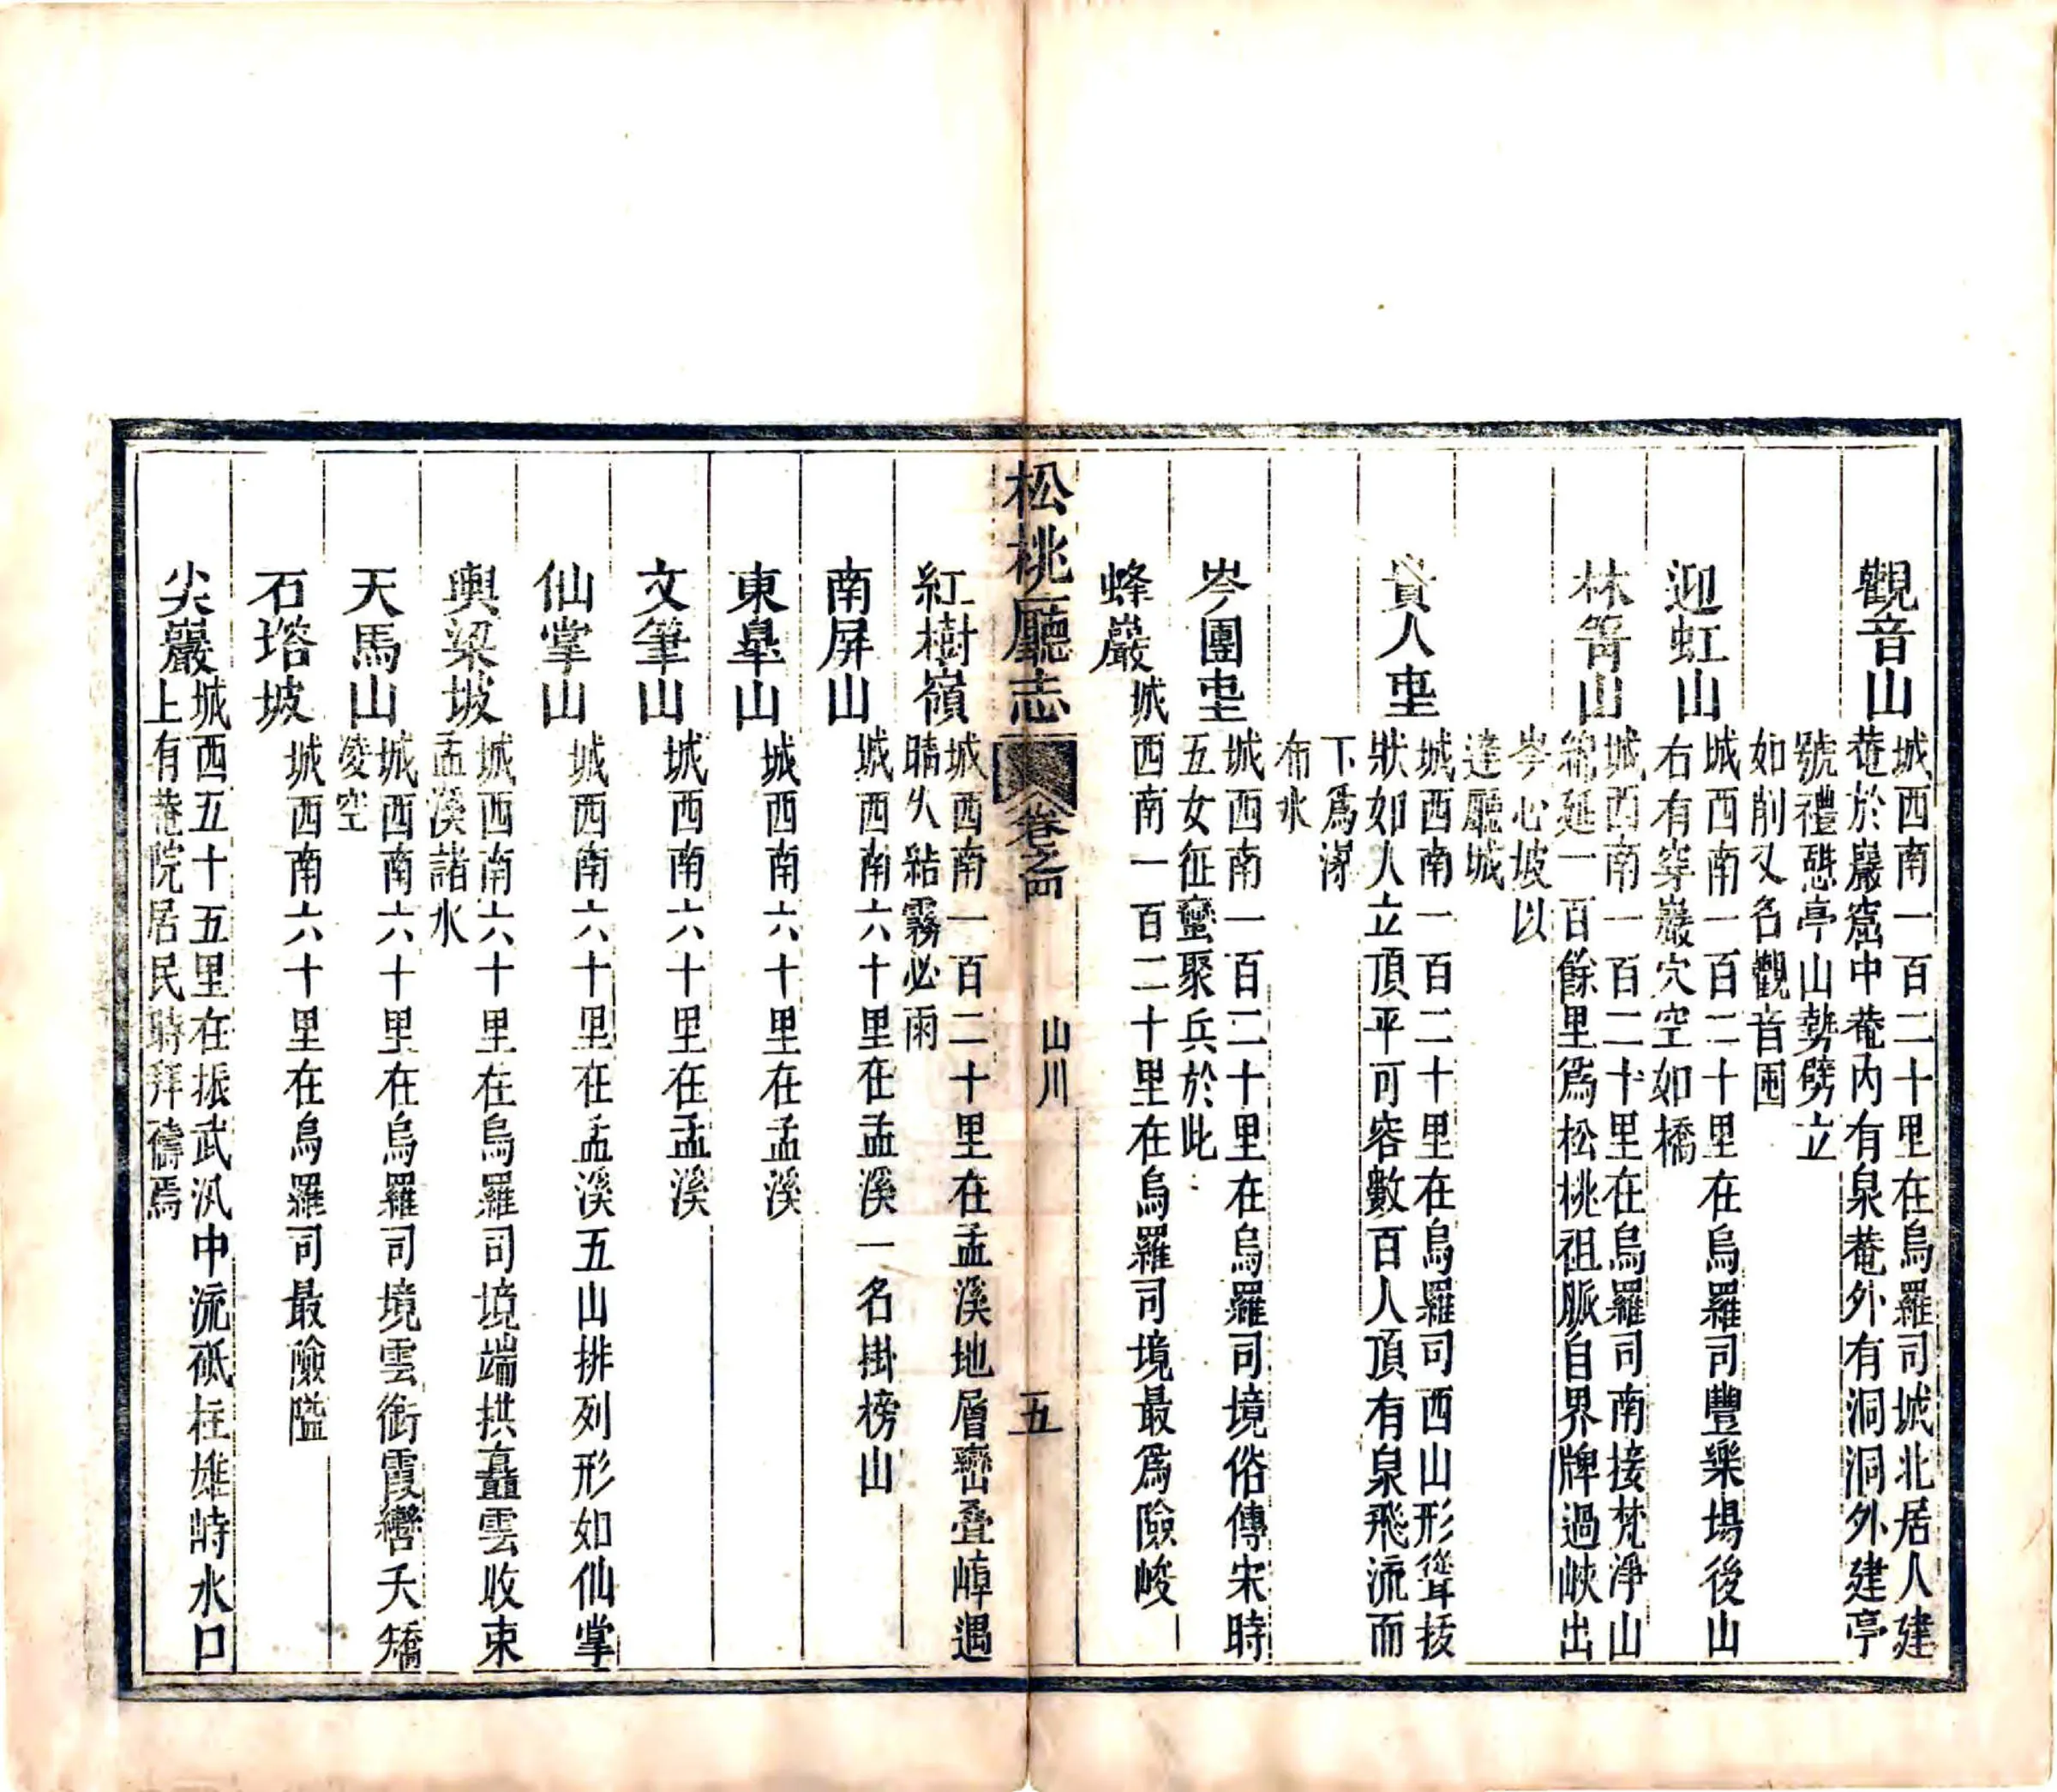 觀音山城西南一百二十里在烏羅司城北居人建
菴於巖窟中菴內有泉菴外有洞洞外建亭
號禮憇亭山勢劈立
如削又名觀音囤
迎虹山城西南一百二十里在烏羅司豐樂場後山
右有穿巖穴空如橋
林箐山城西南一百二十里在烏羅司南接梵淨山
綿延一百餘里爲松桃祖脈自界牌過峽出
岑心坡以
達廳城
貴人坉城西南一百二十里在烏羅司西山形聳拔
狀如人立頂平可容數百人頂有泉飛流而
下爲瀑
布水
岑團坉城西南一百二十里在烏羅司境俗傳宋時
五女征蠻聚兵於此
蜂巖城西南一百二十里在烏羅司境最爲險峻
松桃廳志 卷之四 山川 五
紅樹嶺城西南一百二十里在孟溪地層巒疊嶂遇
晴久粘霧必雨
南屏山城西南六十里在孟溪一名掛榜山
東臯山城西南六十里在孟溪
文筆山城西南六十里在孟溪
仙掌山城西南六十里在孟溪五山排列形如仙掌
輿梁坡城西南六十里在烏羅司境端拱矗雲收束
孟溪諸水
天馬山城西南六十里在烏羅司境雲銜霞轡夭矯
凌空
石塔坡城西南六十里在烏羅司最險隘
尖巖城西五十五里在振武汛中流砥柱雄峙水口
上有菴院居民時拜禱焉